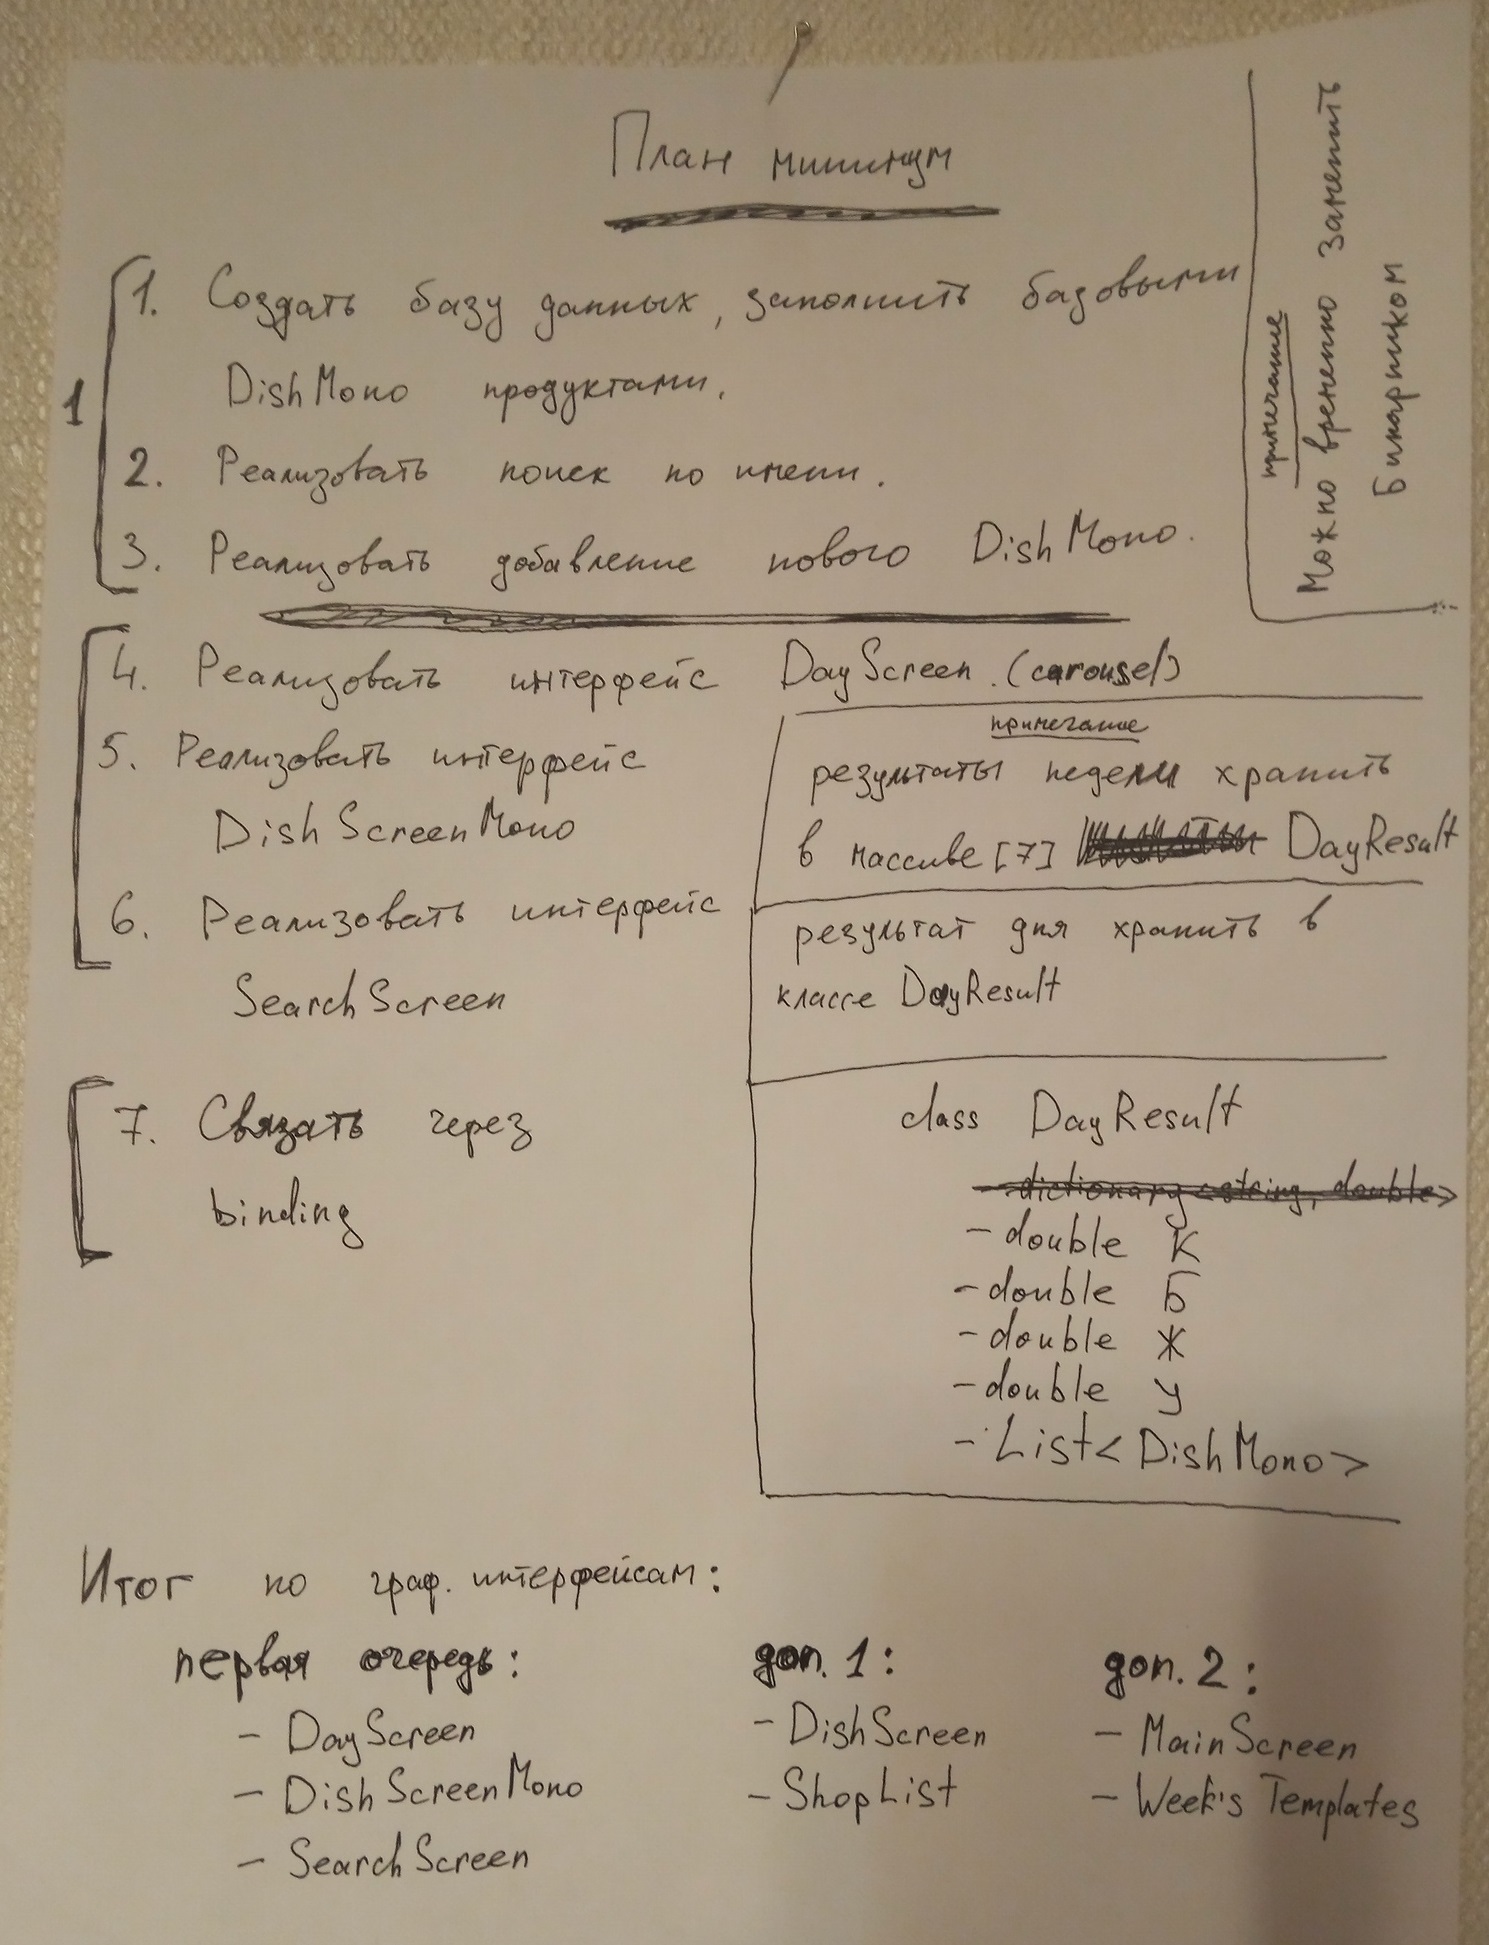 План минимум
1
1. Создать базу данных, заполнить базовыми
DishMono продуктами.
2. Реализовать поиск по имени.
3. Реализовать добавление нового DishMono.
примечание
Можно временно заменить
Бинарником
4. Реализовать интерфейс DayScreen. (carousel)
5. Реализовать интерфейс
DishScreenMono
6. Реализовать интерфейс
SearchScreen
7. Связать через
binding
примечание
результаты недели хранить
в массиве [7] DayResult
результат дня хранить в
классе DayResult
class DayResult
- dictionary <string, double>
- double К
- double Б
- double Ж
- double У
- List<DishMono>
Итог по граф. интерфейсам:
первая очередь:
- DayScreen
- DishScreenMono
- SearchScreen
доп. 1:
- DishScreen
- ShopList
доп. 2:
- MainScreen
- Week's Templates